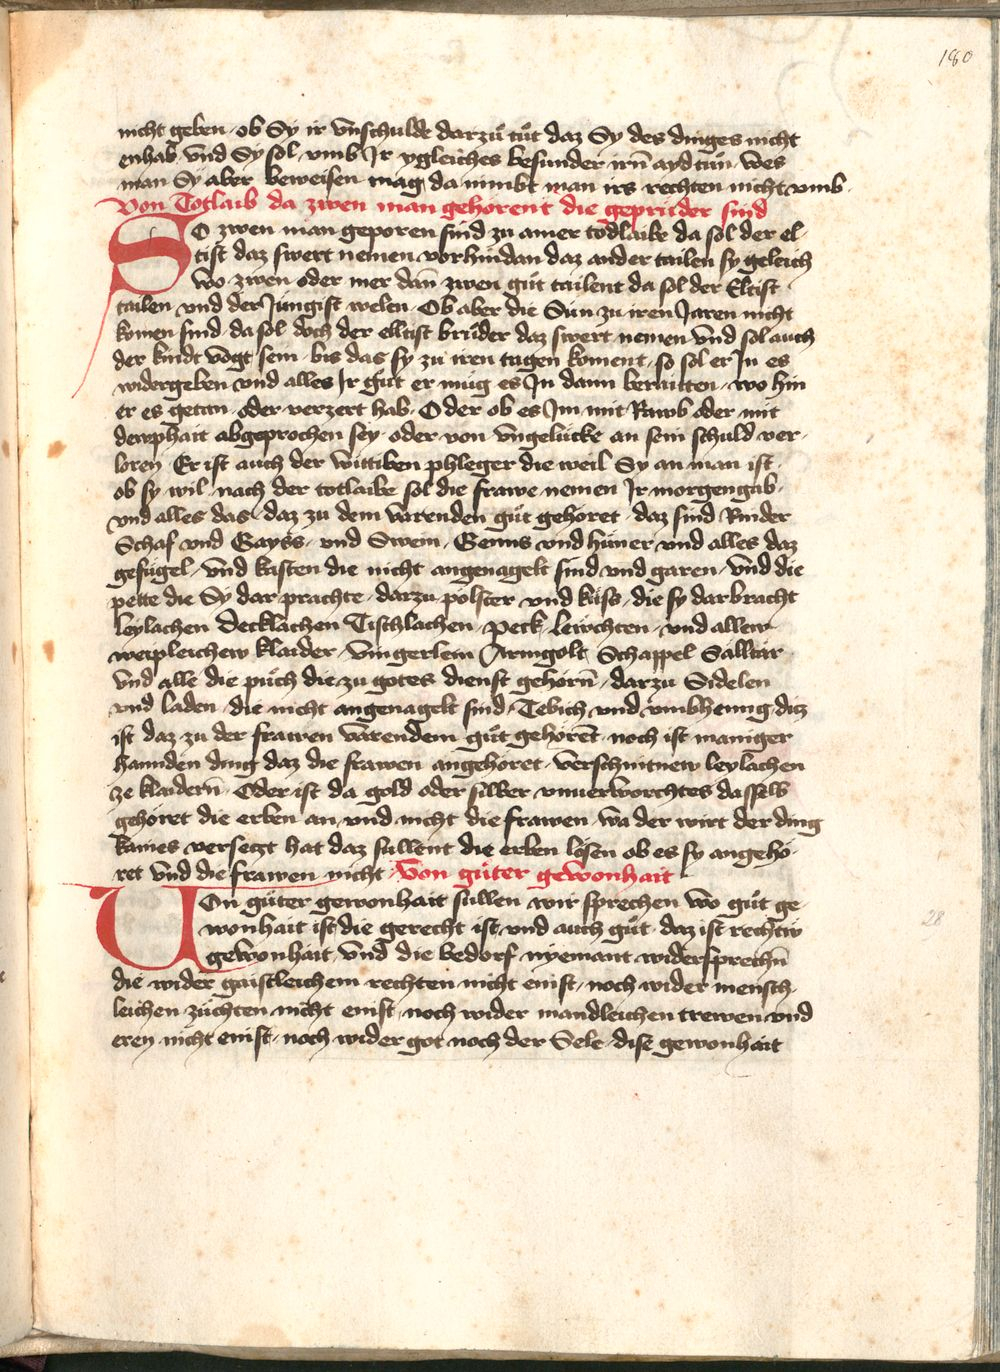 180
nicht geben · ob Sy ir vnschulde darzů tůt daz Sy des dinges nicht
enhab · vnd Sy sol · vmb Jr ygleiches besunder irn̄ ayd tůn · Wes
man Sy aber beweisen mag da nimbt man irs rechten nicht vmb ·
Von Totlaib da zwen man gehorent die geprüder sind
SO zwen man geporen sind zu ainer todlaibe da sol der el-
tist daz swert nemen · vorhindan daz ander tailen sy geleich
wo zwen oder mer dan̄ zwen gůt tailent da sol der Eltist
tailen vnd der Jungist welen · Ob aber die Sun zu iren Jaren nicht
komen sind · da sol doch der elltist brůder daz swert nemen · vnd sol auch
der kindt vogt sein · bis das sy zu iren tagen koment · so sol er Jn es
widergeben vnd alles Jr gůt er műg es Jn dann beraitten · wo hin
er es getan · oder verzert hab · Oder ob es Jm mit Rawb oder mit
dewphait abgeprochen sey · oder von vngelücke an sein schuld ver-
loren Er ist auch der wittiben phleger die weil Sy an man ist ·
ob sy wil · nach der totlaibe sol die frawe nemen Jr morgengab ·
vnd alles das · daz zu dem varenden gůt gehoret · daz sind Rinder
Schaf vnd Gayss · vnd Swein · Genns vnd hüner vnd alles daz
gefügel · vnd kasten die nicht angenagelt sind · vnd garen · vnd die
pette die Sy dar prachte · darzu polster vnd küss · die sy darbracht
leylachen Decklachen Tischlachen · Peck · lewchten · vnd allew
weipleichew klaider · vingerlein Armgolt Schappel Sallter
vnd alle die půch die zu gotes dienst gehorn̄ · darzu Sidelen
vnd laden · die nicht angenagelt sind · Tebich vnd vmbhenng · ditz
ist daz zu der frawen varendem gůt gehoret · noch ist maniger
hannden ding daz die frawen angehoret · verschnitnew leylachen
ze klaidern̄ · Oder ist da gold oder silber vnuerworchtes dasselb
gehoret die erben an · vnd nicht die frawen · wa der wirt der ding
kaines versetzt hat daz sullent die erben lösen ob es sy angeho-
ret vnd die frawen nicht · Von gůter gewonhait
VOn gůter gewonhait sullen wir sprechen wo gůt ge-
wonhait ist · die gerecht ist · vnd auch gůt · daz ist rechtiv
gewonhait · vnd die bedorf nyemant widersprechn̄
die wider gaistleichem rechten nicht enist · noch wider mensch-
leichen züchten nicht enist · noch wider mandleichen trewen vnd
eren nicht enist · noch wider got noch der Sele · dise gewonhait
28